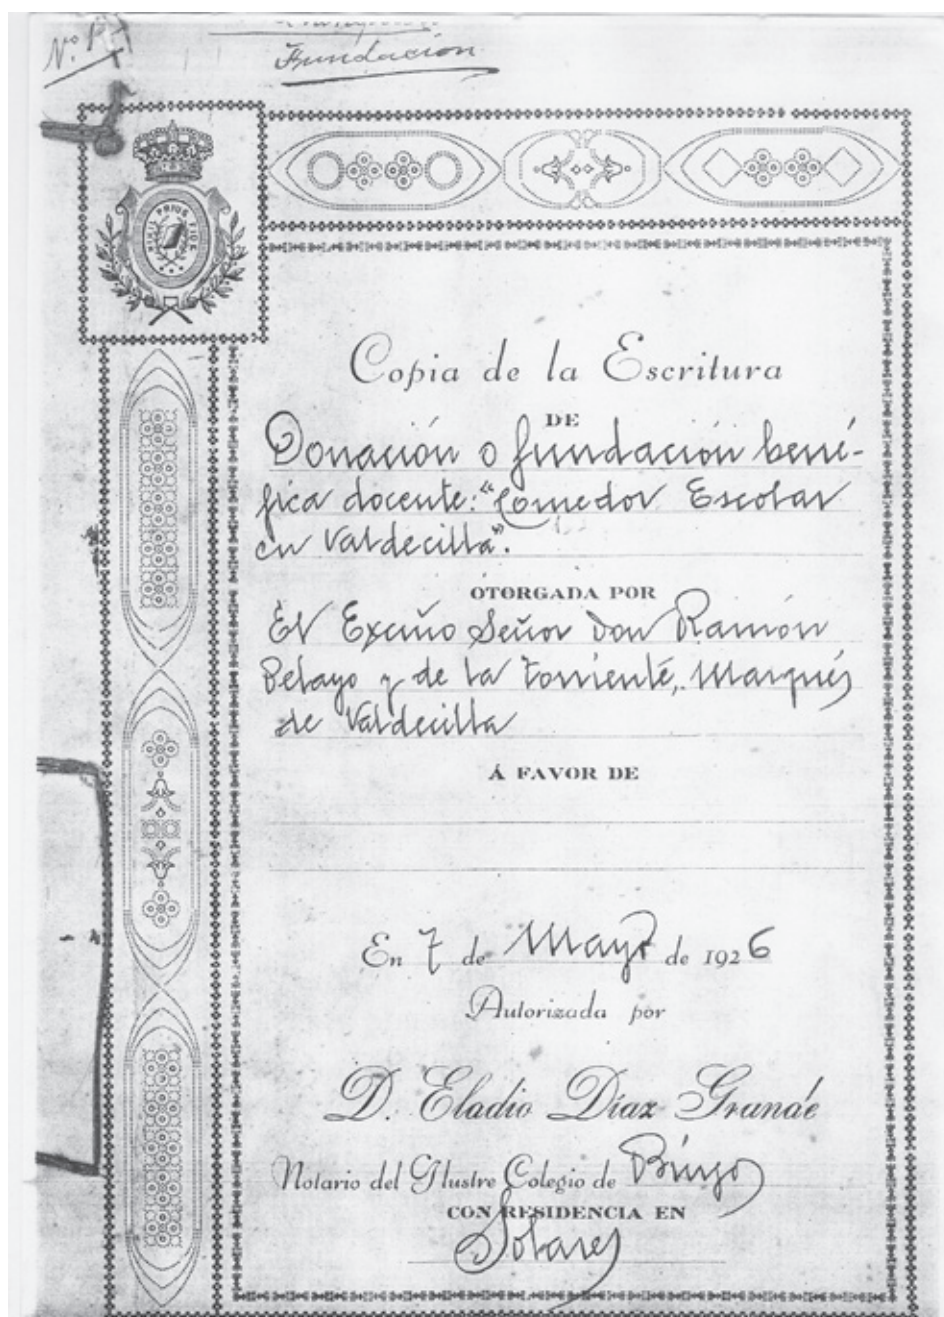 Nº 1
Fundación
NIHIL PRIUS FIDE
Copia de la Escritura
DE
Donación o fundación bené-
fica docente: "Comedor Escolar
en Valdecilla".
OTORGADA POR
El Excmo Señor Don Ramón
Pelayo y de la Torriente, Marqués
de Valdecilla
Á FAVOR DE
En 7 de Mayo de 1926
Autorizada por
D. Eladio Díaz Granáe
Notario del Ilustre Colegio de Burgos
CON RESIDENCIA EN
Solares